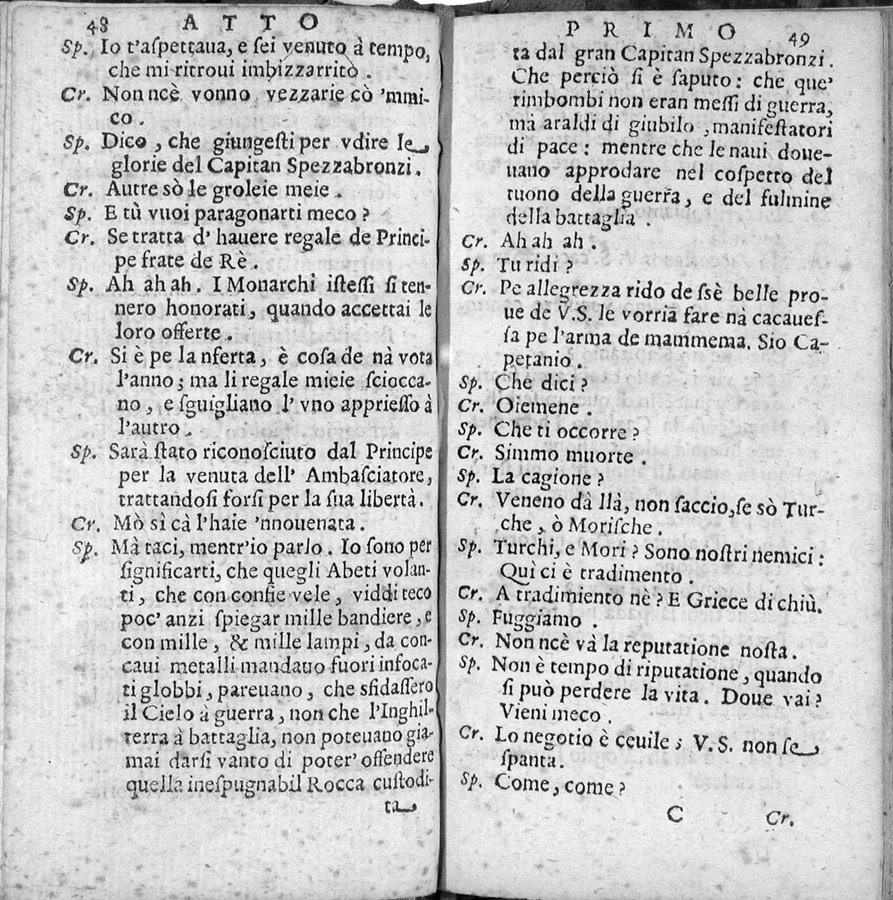 48 ATTO
Sp. Io t'aſpettaua, e ſei venuto à tempo,
che mi ritroui imbizzarrito.
Cr. Non ncè vonno vezzarie cò 'mmi-
co.
Sp. Dico, che giungeſti per vdire le
glorie del Capitan Spezzabronzi.
Cr. Autre sò le groleie meie.
Sp. E tù vuoi paragonarti meco?
Cr. Se tratta d' hauere regale de Princi-
pe frate de Rè.
Sp. Ah ah ah. I Monarchi iſteſſi ſi ten-
nero honorati, quando accettai le
loro offerte.
Cr. Si è pe la nferta, è coſa de nà vota
l'anno; ma li regale mieie ſciocca-
no, e sguigliano l' vno apprieſſo à
l'autro.
Sp. Sarà ſtato riconoſciuto dal Principe
per la venuta dell' Ambaſciatore,
trattandoſi forſi per la ſua libertà.
Cr. Mò sì cà l'haie 'nnouenata.
Sp. Mà taci, mentr'io parlo. Io ſono per
ſignificarti, che quegli Abeti volan-
ti, che con confie vele, viddi teco
poc' anzi ſpiegar mille bandiere, e
con mille, & mille lampi, da con-
caui metalli mandauo fuori infoca-
ti globbi, pareuano, che sfidaſſero
il Cielo à guerra, non che l'Inghil-
terra à battaglia, non poteuano gia-
mai darſi vanto di poter' offendere
quella ineſpugnabil Rocca cuſtodi-
ta
PRIMO 49
ta dal gran Capitan Spezzabronzi.
Che perciò ſi è ſaputo: che que'
rimbombi non eran meſſi di guerra,
mà araldi di giubilo, manifeſtatori
di pace: mentre che le naui doue-
uano approdare nel coſpetto del
tuono della guerra, e del fulmine
della battaglia.
Cr. Ah ah ah.
Sp. Tu ridi?
Cr. Pe allegrezza rido de ſsè belle pro-
ue de V.S. le vorria fare nà cacaueſ-
ſa pe l'arma de mammema. Sio Ca-
petanio.
Sp. Che dici?
Cr. Oiemene.
Sp. Che ti occorre?
Cr. Simmo muorte.
Sp. La cagione?
Cr. Veneno dà llà, non ſaccio, ſe sò Tur-
che, ò Moriſche.
Sp. Turchi, e Mori? Sono noſtri nemici:
Quì ci è tradimento.
Cr. A tradimiento nè? E Griece di chiù.
Sp. Fuggiamo.
Cr. Non ncè và la reputatione noſta.
Sp. Non è tempo di riputatione, quando
ſi può perdere la vita. Doue vai?
Vieni meco.
Cr. Lo negotio è ceuile; V.S. non ſe
ſpanta.
Sp. Come, come?
C Cr.